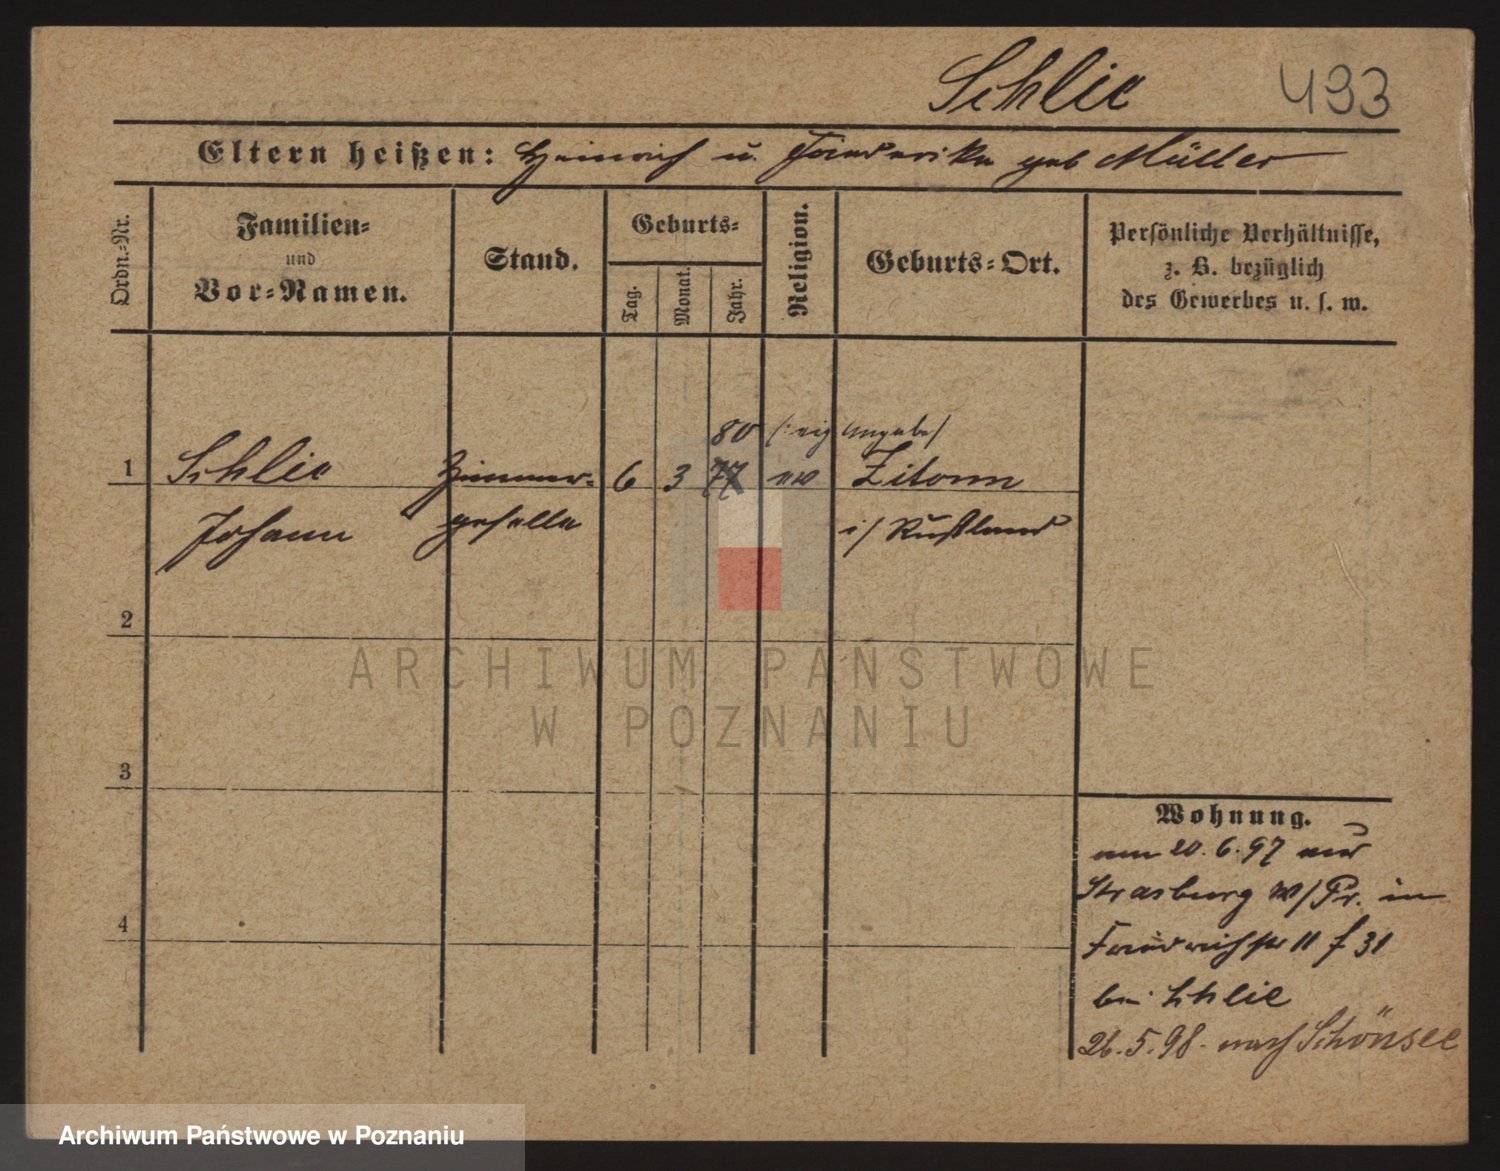 Schlie 493
Eltern heißen: Heinrich u. Friederike geb Müller
Ordn.=Nr.
Familien=
und
Vor=Namen.
Stand.
Geburts=
Tag.
Monat.
Jahr.
Religion.
Geburts=Ort.
Persönliche Verhältnisse,
z. B. bezüglich
des Gewerbes u. s. w.
80 (: eig Angabe/
1 Schlie Zimmer= 6 3 77 ev
Johann geselle i/ Rußland
2
3
4
Wohnung.
am 20. 6. 97 aus
Strasburg W/Pr. in
Friedrichstr 11 f 31
bei Schlie
26. 5. 98. nach Schönsee
ARCHIWUM PAŃSTWOWE
W POZNANIU
Archiwum Państwowe w Poznaniu